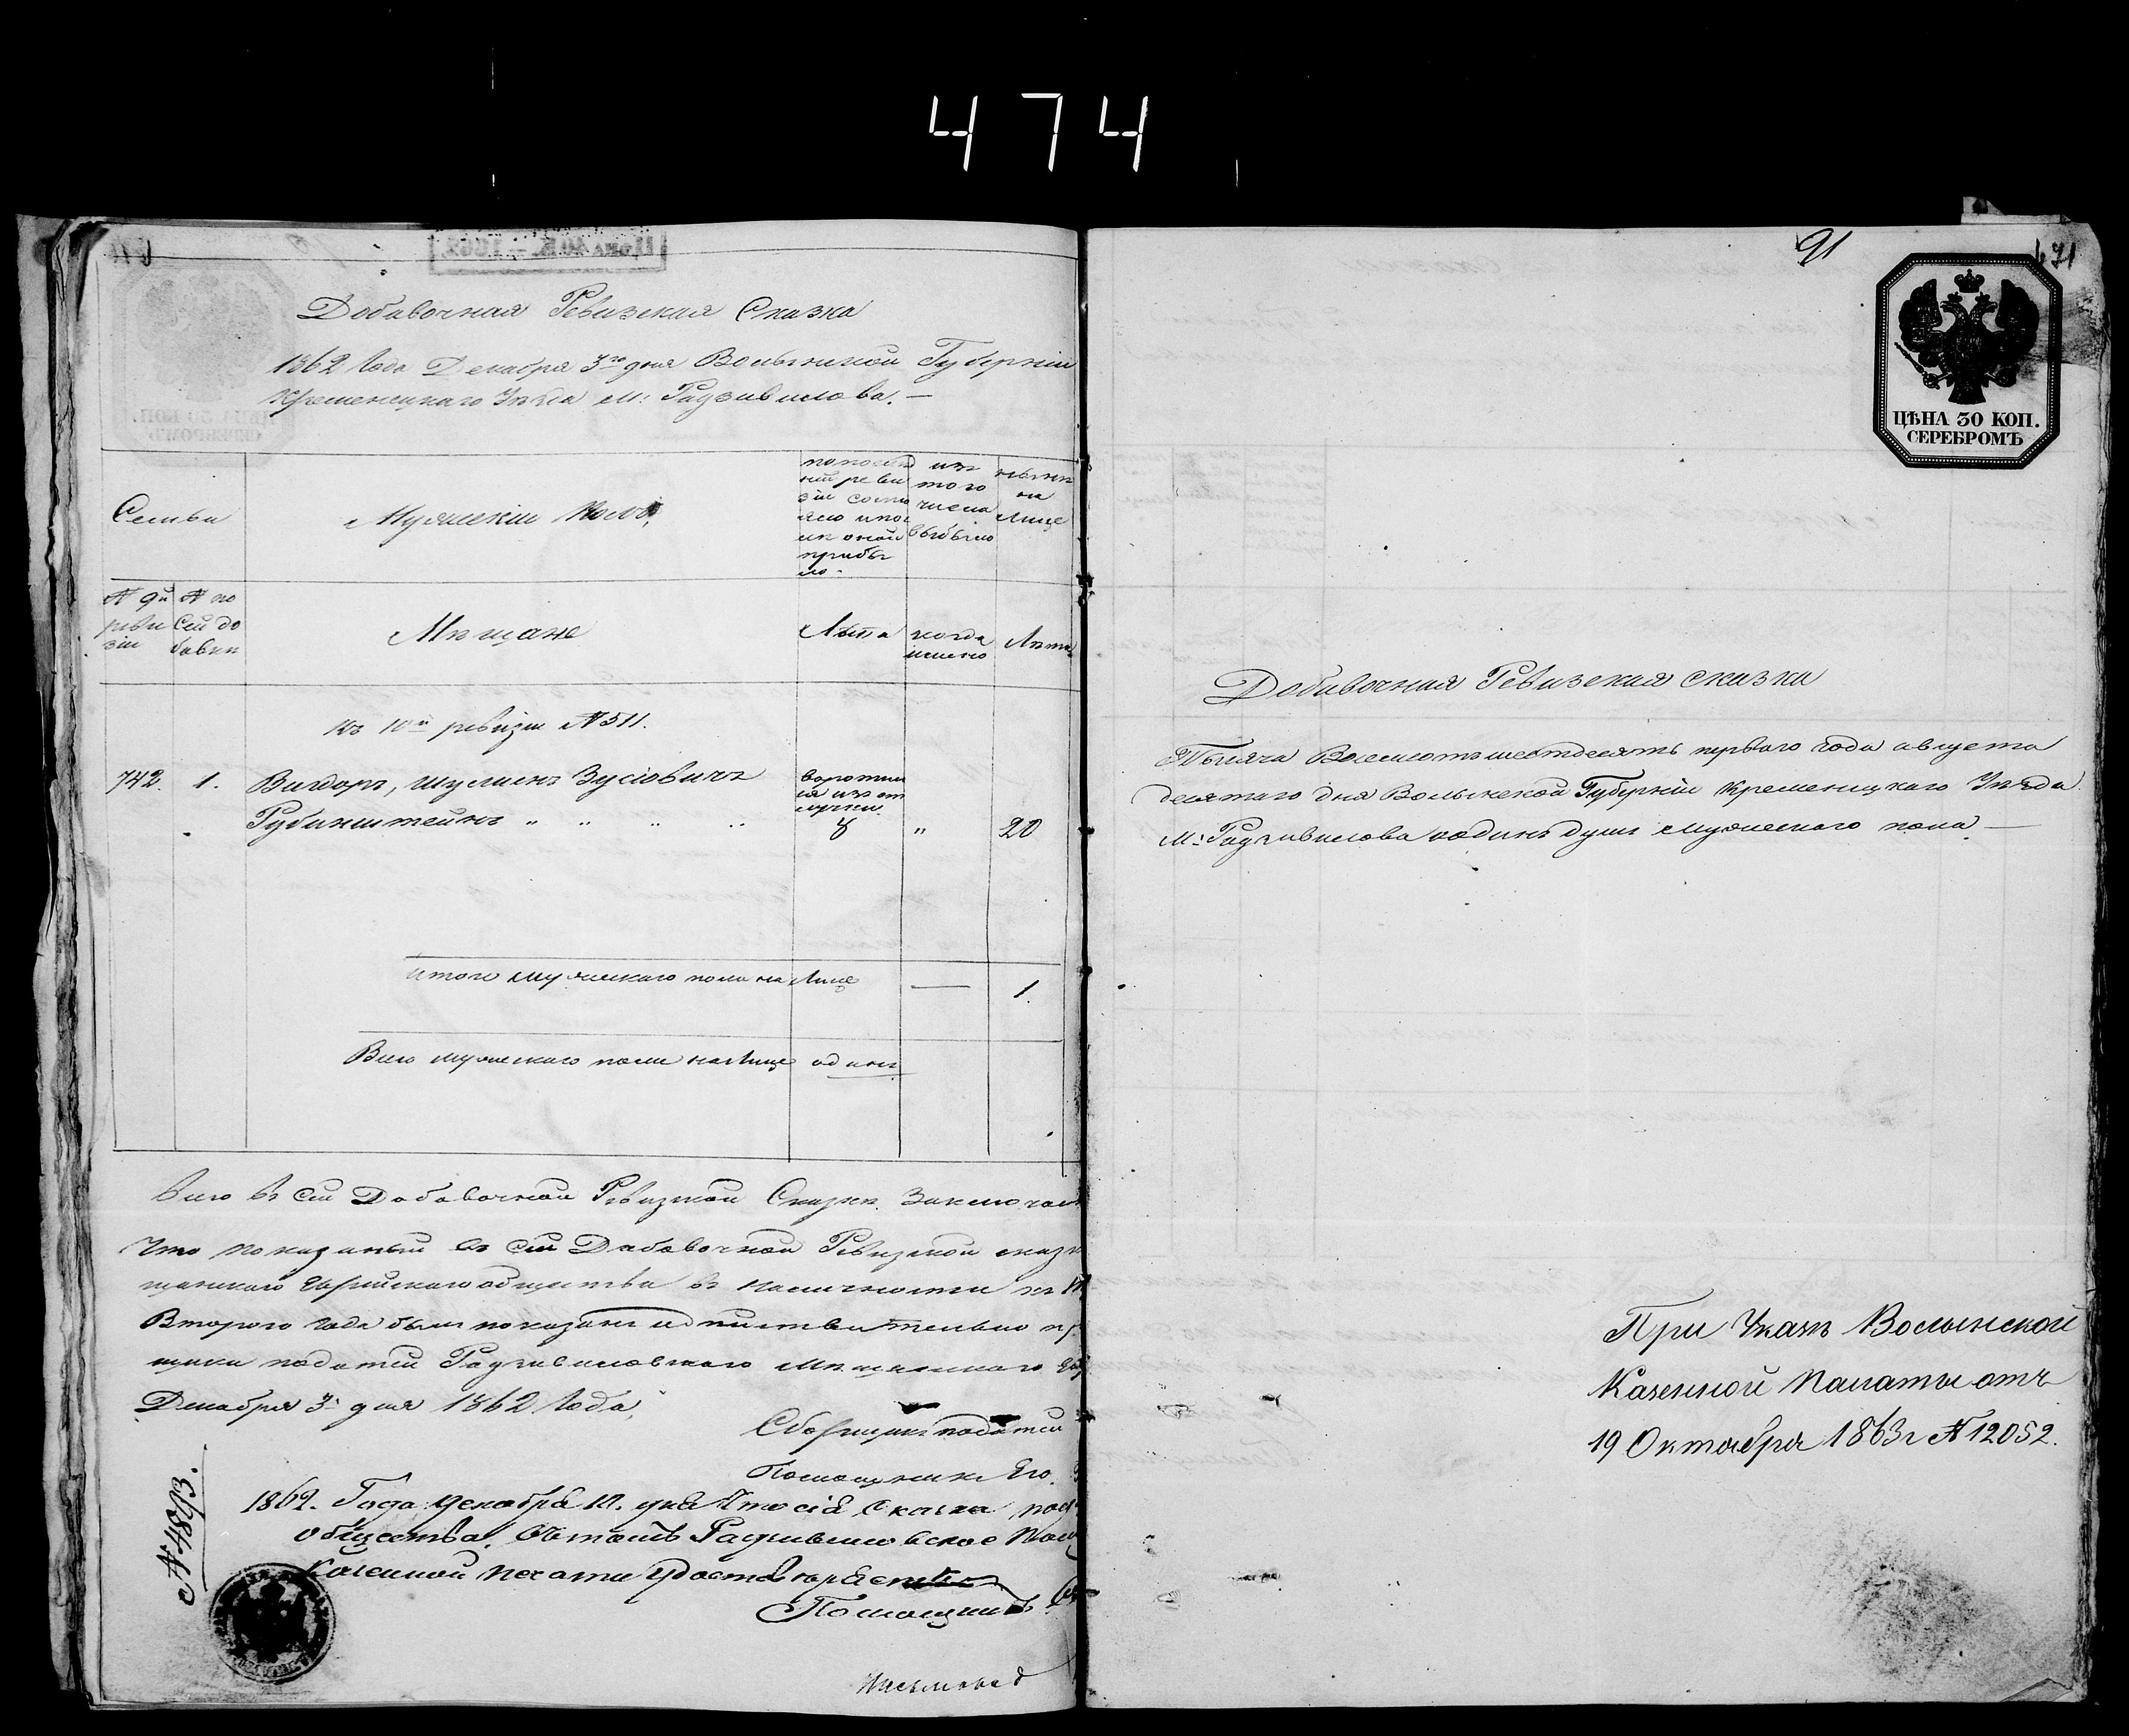 474
Добавочная Ревизская Сказка
1862 Года Декабря 3го дня Волынской Губерніи
Кременецкаго Уѣзда м: Радзивилова.—
Семьи
Мужескій Полъ
по послѣд
ней реви
зіи состо
яло и пос
лѣ оной
прибы
ло.
изъ
того
числа
выбыло
нынѣ
на
Лице
№ 9й
реви
зіи
№ по
сей до
бавки
Мѣщане
Лѣта
когда
именно
Лѣта
къ 10й ревизіи №511.
742. 1. Вигдоръ, Шулимъ Зусіовичъ
воротил
ся изъ от
лучки
Рубинштейнъ " " " " " 20
итого мужескаго пола на Лице — 1.
Всего мужескаго пола на Лице одинъ
Всего въ сей Добавочной Ревизской Сказкѣ Заключает
Что показаный въ сей Добавочной Ревизской сказк
щанскаго Еврейскаго общества въ наличности къ
Второго Года былъ показанъ
щики податей Радзивиловскаго Мѣщанскаго
Декабря 3 дня 1862 Года,
Сборщикъ податей
Помощникъ Его
№4893.
1862. Года Декабря 10. дня Что сія Сказка
общества, въ томъ Радзивиловское
Казенной печати удостовѣряетъ
Помощникъ
91
671
ЦѢНА 30 КОП.
СЕРЕБРОМЪ
Добавочная Ревизская сказка
Тысяча Восемсотъ шестдесятъ перваго года августа
десятаго дня Волынской Губерніи Кременецкаго Уѣзда
М: Радзивилова одинъ душъ мужескаго пола —
При Указѣ Волынской
Казенной Палаты отъ
19 Октября 1863 г №12052.